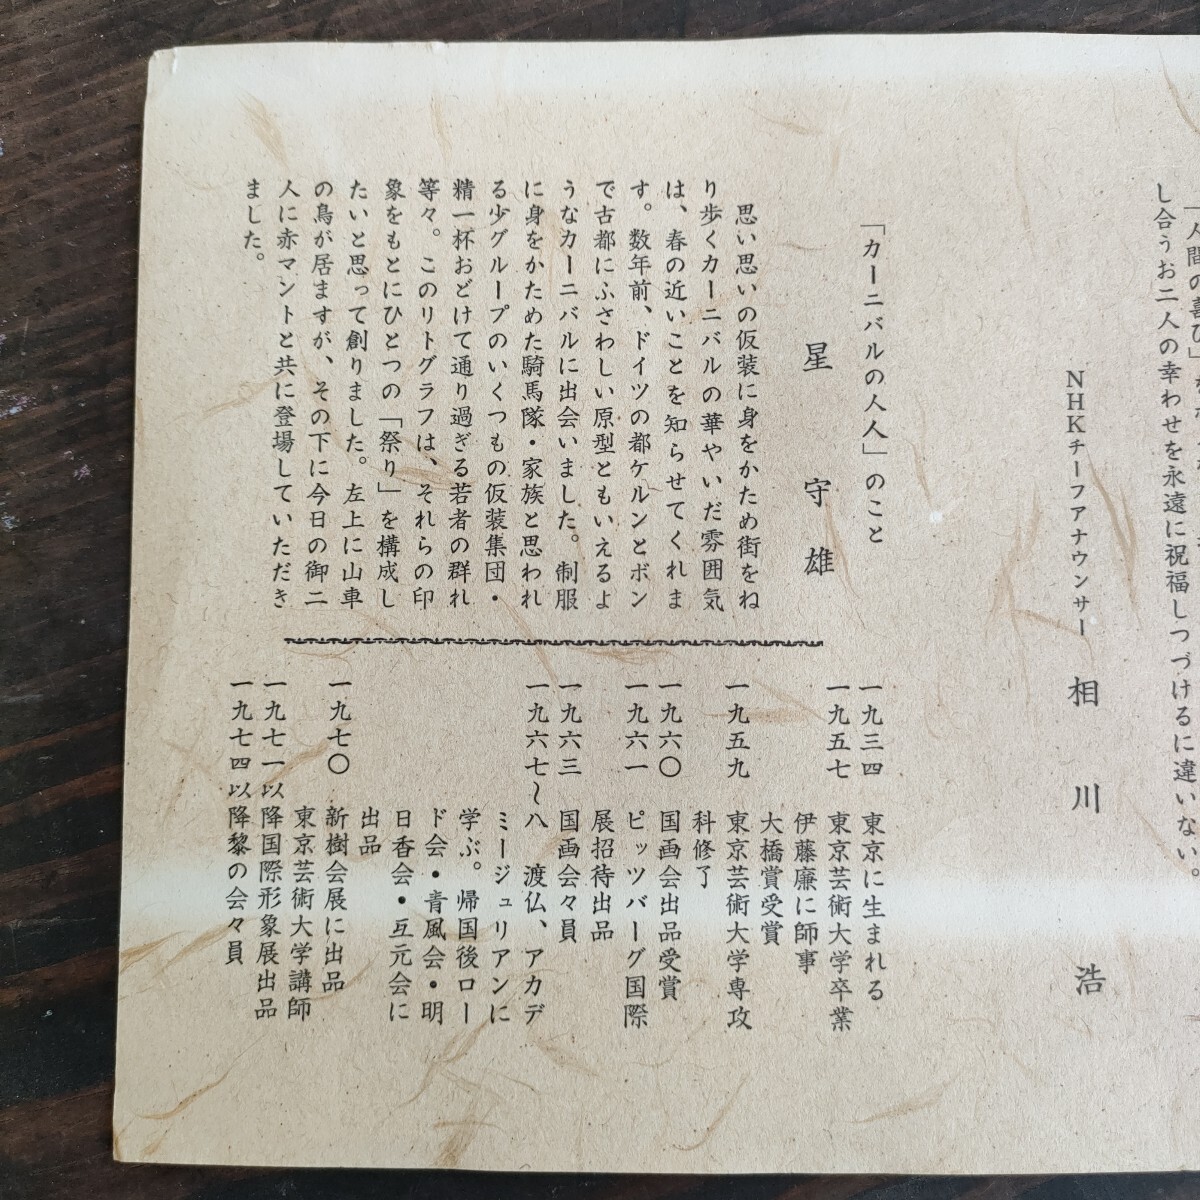 し合うお二人の幸わせを永遠に祝福しつづけるに違いない。
NHKチーフアナウンサー 相川 浩
「カーニバルの人人」のこと
星守雄
思い思いの仮装に身をかため街をね
り歩くカーニバルの華やいだ雰囲気
は、春の近いことを知らせてくれま
す。数年前、ドイツの都ケルンとボン
で古都にふさわしい原型ともいえるよ
うなカーニバルに出会いました。制服
に身をかためた騎馬隊・家族と思われ
る少グループのいくつもの仮装集団・
精一杯おどけて通り過ぎる若者の群れ
等々。このリトグラフは、それらの印
象をもとにひとつの「祭り」を構成し
たいと思って創りました。左上に山車
の鳥が居ますが、その下に今日の御二
人に赤マントと共に登場していただき
ました。
一九三四 東京に生まれる
一九五七 東京芸術大学卒業
伊藤廉に師事
大橋賞受賞
一九五九 東京芸術大学専攻
科修了
一九六〇 国画会出品受賞
一九六一 ピッツバーグ国際
展招待出品
一九六三 国画会々員
一九六七〜八 渡仏、アカデ
ミージュリアンに
学ぶ。帰国後ロー
ド会・青風会・明
日香会・互元会に
出品
一九七〇 新樹会展に出品
東京芸術大学講師
一九七一以降国際形象展出品
一九七四以降黎の会々員